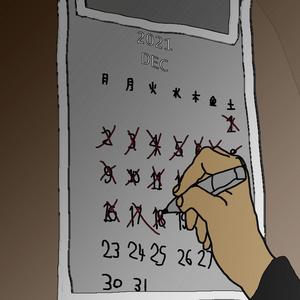 2021
DEC
日 月 火 水 木 金 土
1
2 3 4 5
9 10 11
16 17 18 19
23 24 25 26 27
30 31